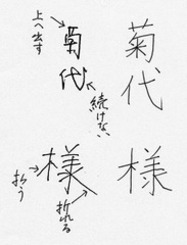 菊代
様
菊代
様
上へ出す
続けない
払う
折れる